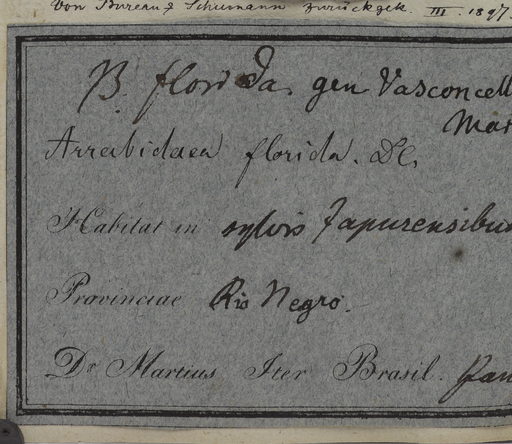 Von Bureau & Schumann zurückgek. III. 1897.
B. florida. gen Vasconcell
Mar
Arrabidaea florida. DC.
Habitat in sylvis Japurensibus
Provinciae Rio Negro.
Dr Martius Iter Brasil.